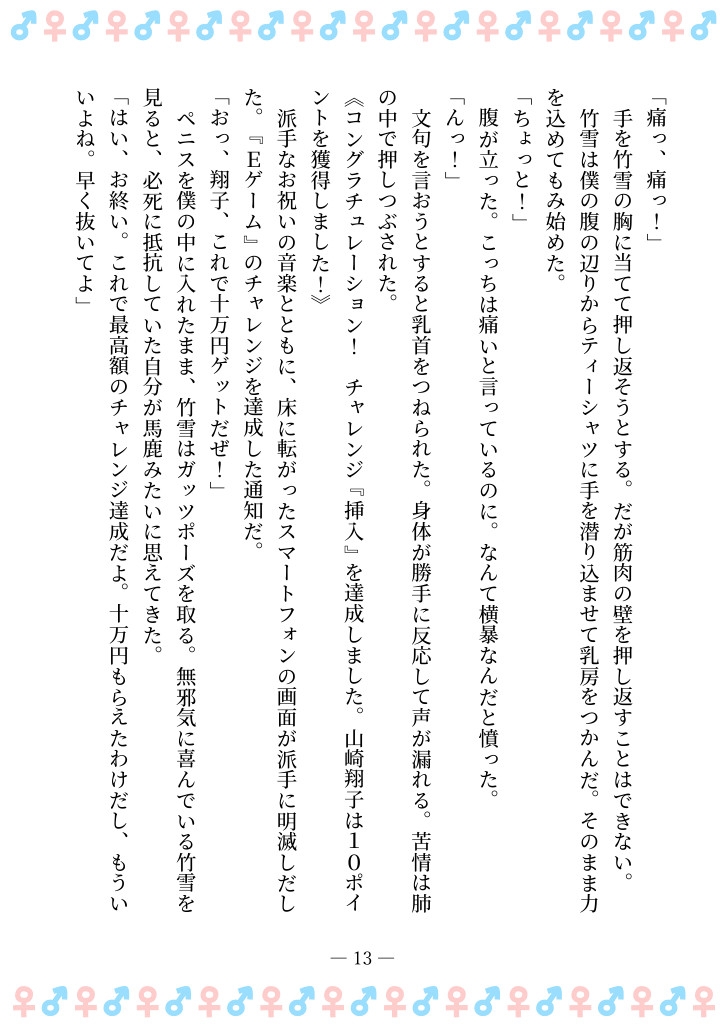 「痛っ、痛っ！」
手を竹雪の胸に当てて押し返そうとする。だが筋肉の壁を押し返すことはできない。
竹雪は僕の腹の辺りからティーシャツに手を潜り込ませて乳房をつかんだ。そのまま力
を込めてもみ始めた。
「ちょっと！」
腹が立った。こっちは痛いと言っているのに。なんて横暴なんだと憤った。
「んっ！」
文句を言おうとすると乳首をつねられた。身体が勝手に反応して声が漏れる。苦情は肺
の中で押しつぶされた。
《コングラチュレーション！　チャレンジ『挿入』を達成しました。山崎翔子は１０ポイ
ントを獲得しました！》
派手なお祝いの音楽とともに、床に転がったスマートフォンの画面が派手に明滅しだし
た。『Ｅゲーム』のチャレンジを達成した通知だ。
「おっ、翔子、これで十万円ゲットだぜ！」
ペニスを僕の中に入れたまま、竹雪はガッツポーズを取る。無邪気に喜んでいる竹雪を
見ると、必死に抵抗していた自分が馬鹿みたいに思えてきた。
「はい、お終い。これで最高額のチャレンジ達成だよ。十万円もらえたわけだし、もうい
いよね。早く抜いてよ」
― 13 ―